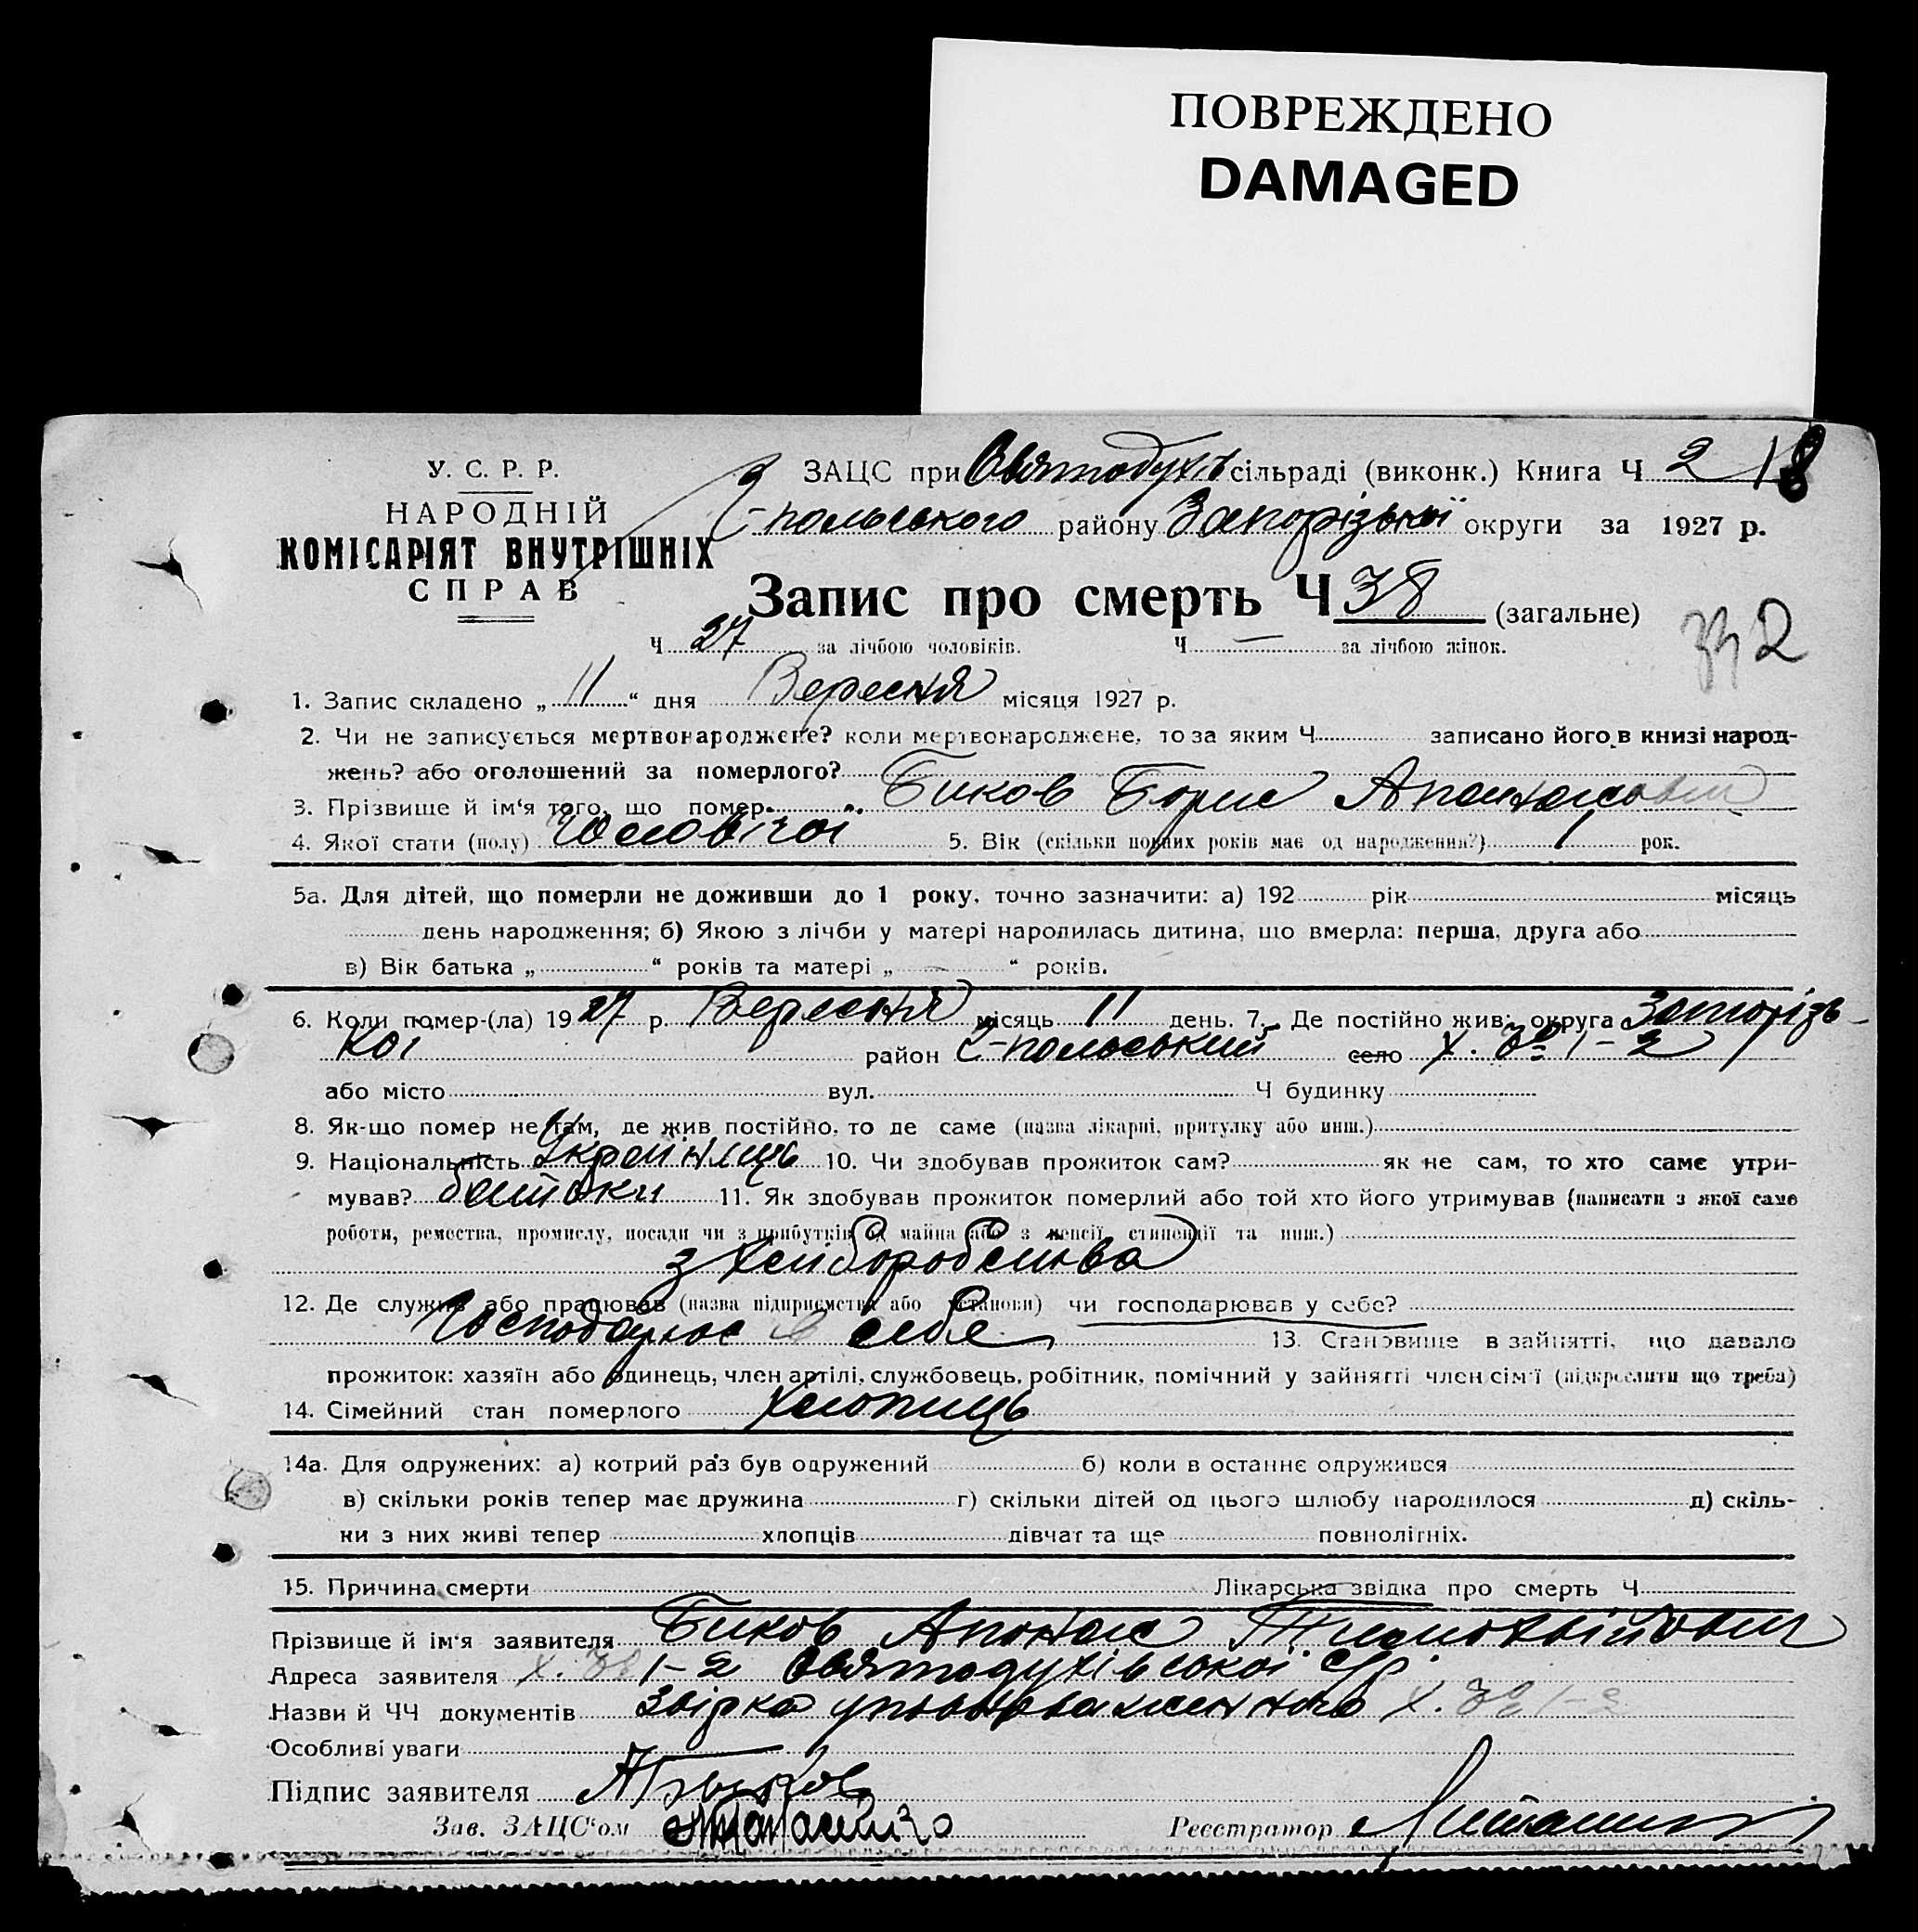 ПОВРЕЖДЕНО
DAMAGED
У. С. Р. Р.
НАРОДНІЙ
КОМІСАРІЯТ ВНУТРІШНІХ
СПРАВ
ЗАЦС при Святодухів сільраді (виконк.) Книга Ч 2
-польського району Запорізької округи за 1927 р.
Запис про смерть Ч 38 (загальне)
332
Ч 27 за лічбою чоловіків. Ч — за лічбою жінок.
1. Запис складено „ 11 “ дня Вересня місяця 1927 р.
2. Чи не записується мертвонароджене? коли мертвонароджене, то за яким Ч записано його в книзі народ-
жень? або оголошений за померлого?
3. Прізвище й ім‘я того, що помер Биков Борис Апанасович
4. Якої стати (полу) чоловічої 5. Вік (скільки повних років має од народження?) 1 рок.
5а. Для дітей, що померли не доживши до 1 року, точно зазначити: а) 192 рік місяць
день народження; б) Якою з лічби у матері народилась дитина, що вмерла: перша, друга або
в) Вік батька „ “ років та матері „ “ років.
6. Коли помер-(ла) 1927 р. Вересня місяць 11 день. 7. Де постійно жив: округа Запорізь-
кої район -польський село Х. № 1-2
або місто вул. Ч будинку
8. Як-що помер не там, де жив постійно, то де саме (назва лікарні, притулку або инш.)
9. Національність Українець 10. Чи здобував прожиток сам? як не сам, то хто саме утри-
мував? батьки 11. Як здобував прожиток померлий або той хто його утримував (написати з якої саме
роботи, ремества, промислу, посади чи з прибутків од майна або з пенсії, стипендії та инш.)
з хліборобства
12. Де служив або працював (назва підприємства або установи) чи господарював у себе?
Господарює в себе 13. Становище в зайнятті, що давало
прожиток: хазяїн або одинець, член артілі, службовець, робітник, помічний у зайнятті член сім‘ї (підкреслити що треба)
14. Сімейний стан померлого хлопець
14а. Для одружених: а) котрий раз був одружений б) коли в останнє одружився
в) скільки років тепер має дружина г) скільки дітей од цього шлюбу народилося д) скіль-
ки з них живі тепер хлопців дівчат та ще повнолітніх.
15. Причина смерти Лікарська звідка про смерть Ч
Прізвище й ім‘я заявителя Биков Апанас
Адреса заявителя Х. № 1-2 Святодухівської с/р
Назви й ЧЧ документів Звірка уповноваженного Х. № 1-2
Особливі уваги
Підпис заявителя АБыков
Зав. ЗАЦС‘ом
Реєстратор